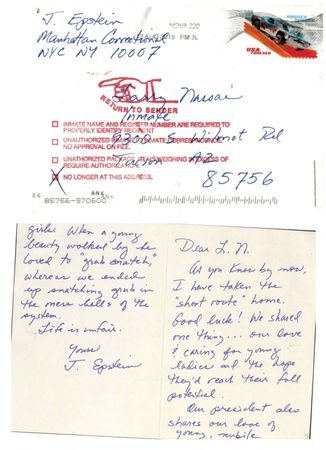 J. Epstein
Manhattan Correctional
NYC NY 10007
NOVA 220
2019 PM 3 L
USA
FOREVER
RETURN TO SENDER
Larry Nassar
Inmate
9300 S Wilmot Rd
Tucson AZ
85756
INMATE NAME AND REGISTER NUMBER ARE REQUIRED TO
PROPERLY IDENTIFY RECIPIENT
UNAUTHORIZED
NO APPROVAL ON FILE.
UNAUTHORIZED PACKAGE. ITEMS WEIGHING IN EXCESS OF
REQUIRE
X NO LONGER AT THIS ADDRESS.
ANK
85756-970600
Dear L. N.
As you know by now,
I have taken the
"short route" home.
Good luck! We shared
one thing... our love
& caring for young
ladies and the hope
they'd reach their full
potential.
Our president also
shares our love of
young, nubile
girls. When a young
beauty walked by he
loved to "grab snatch,"
whereas we ended
up snatching grub in
the mess halls of the
system.
Life is unfair.
Yours
J. Epstein